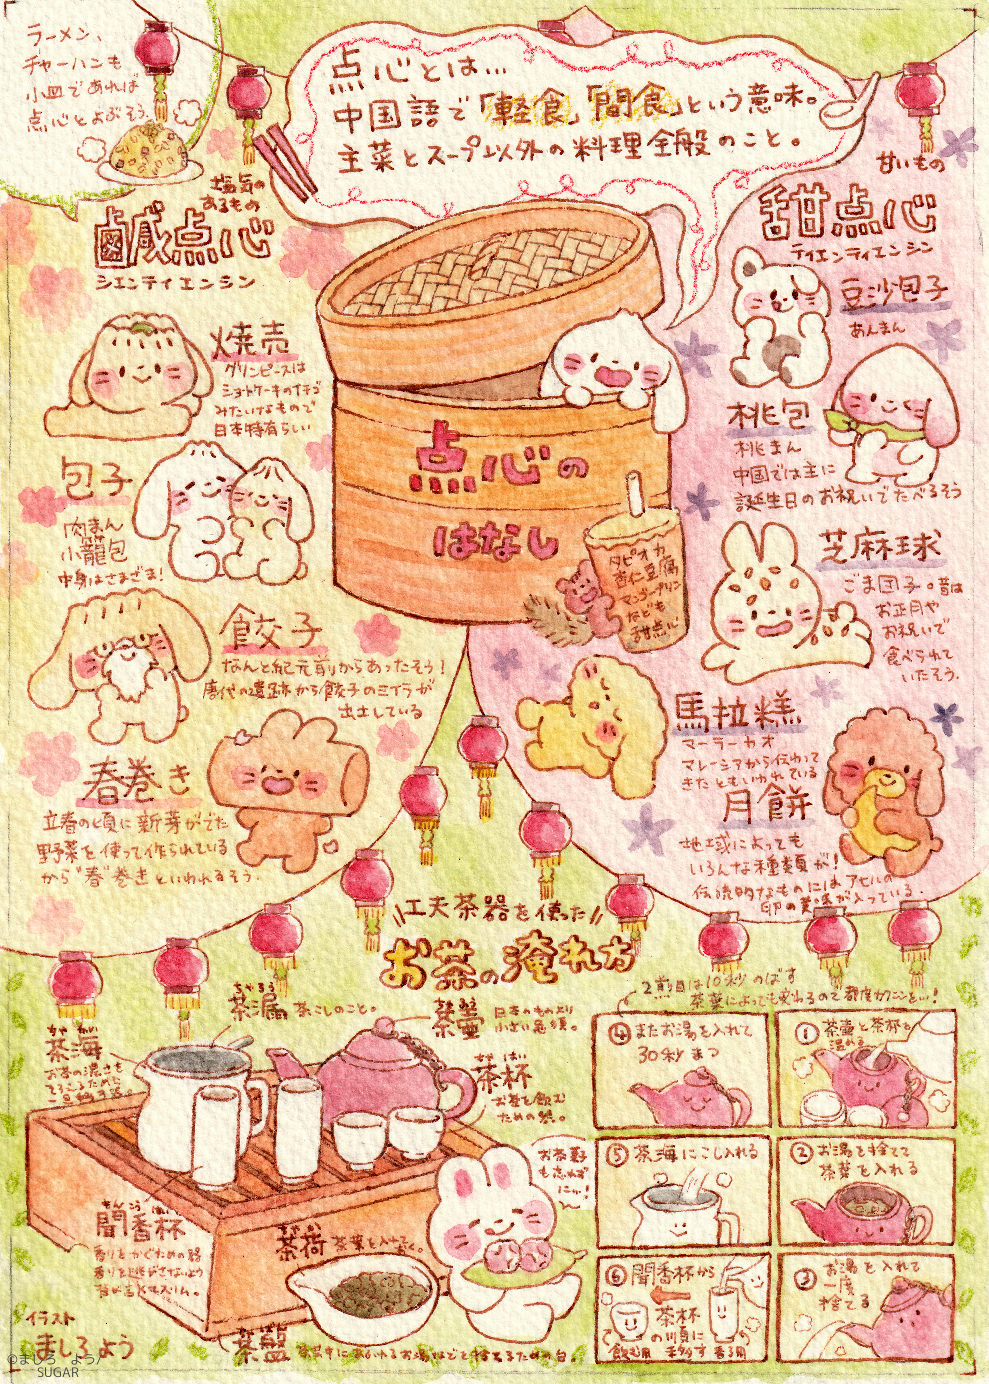 ラーメン、
チャーハンも
小皿であれば
点心とよぶそう。
点心とは…
中国語で「軽食」「間食」という意味。
主菜とスープ以外の料理全般のこと。
塩気の
あるもの
鹹点心
シエンティエンシン
焼売
グリンピースは
ショートケーキのイチゴ
みたいなもので
日本特有らしい
包子
肉まん
小籠包
中身はさまざま!
餃子
なんと紀元前からあったそう!
唐代の遺跡から餃子のミイラが
出土している
春巻き
立春の頃に新芽がでた
野菜を使って作られている
から"春"巻きといわれるそう。
点心の
はなし
タピオカ
杏仁豆腐
マンゴープリン
なども
甜点心
甘いもの
甜点心
ティエンティエンシン
豆沙包子
あんまん
桃包
桃まん
中国では主に
誕生日のお祝いでたべるそう
芝麻球
ごま団子。昔は
お正月や
お祝いで
食べられて
いたそう。
馬拉糕
マーラーカオ
マレーシアから伝わって
きたともいわれている
月餅
地域によっても
いろんな種類が!
伝統的なものにはアヒルの
卵の黄身が入っている。
工夫茶器を使った
お茶の淹れ方
ちゃろう
茶漏 茶こしのこと。
茶壷 日本のものより
小さい急須。
ちゃ かい
茶海
お茶の濃さを
ちゃ はい
茶杯
お茶を飲む
ための器。
聞香杯
香りをかぐための器
香りを逃がさないよう
茶荷 茶葉を入れておく。
お茶菓子
も忘れず
に…!
茶盤
2煎目は10秒のばす
茶葉によっても変わるので都度カクニンを…!
① 茶壷と茶杯を
温める
② お湯を捨てて
茶葉を入れる
③ お湯を入れて
一度
捨てる
④ またお湯を入れて
30秒まつ
⑤ 茶海にこし入れる
⑥ 聞香杯から
茶杯
の順に
飲む用 移す 香る用
イラスト
ましろ よう
©ましろ よう/
SUGAR